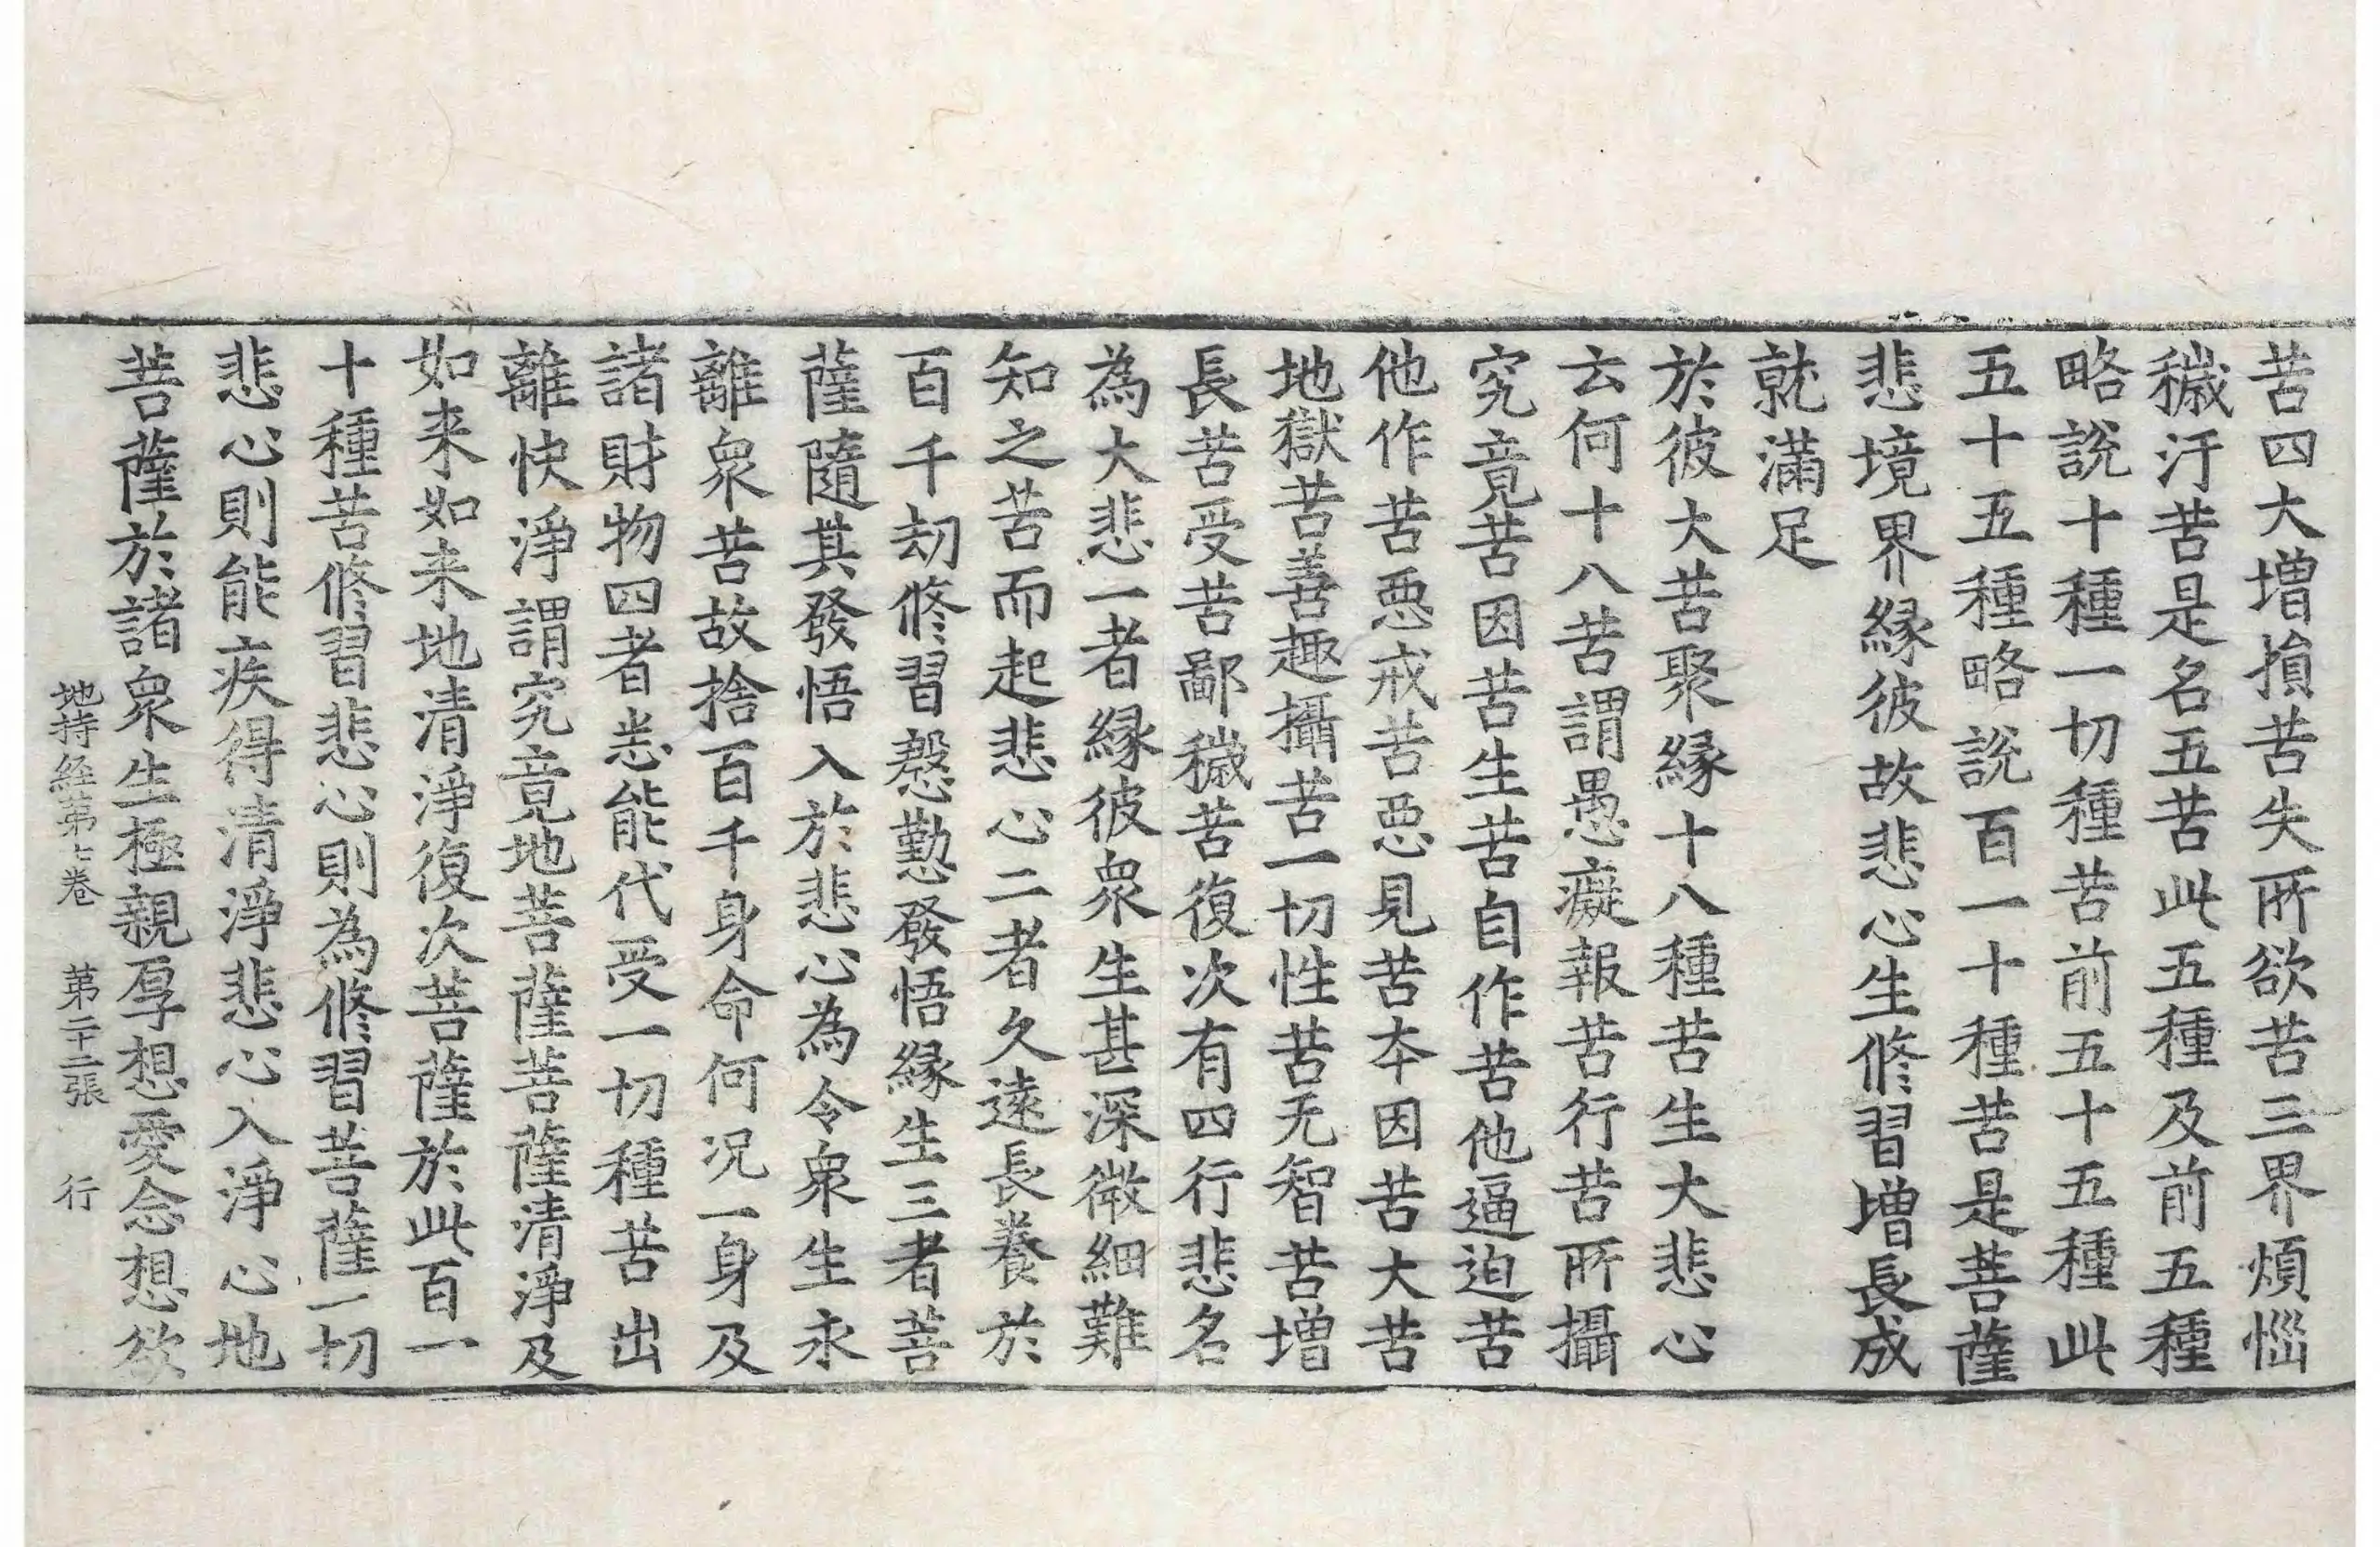 苦四大增損苦失所欲苦三界煩惱
穢汙苦是名五苦此五種及前五種
略說十種一切種苦前五十五種此
五十五種略說百一十種苦是菩薩
悲境界緣彼故悲心生修習增長成
就滿足
於彼大苦聚緣十八種苦生大悲心
云何十八苦謂愚癡報苦行苦所攝
究竟苦因苦生苦自作苦他逼迫苦
他作苦惡戒苦惡見苦本因苦大苦
地獄苦善趣攝苦一切性苦无智苦增
長苦受苦鄙穢苦復次有四行悲名
為大悲一者緣彼眾生甚深微細難
知之苦而起悲心二者久遠長養於
百千劫修習慇懃發悟緣生三者菩
薩隨其發悟入於悲心為令眾生永
離眾苦故捨百千身命何況一身及
諸財物四者悉能代受一切種苦出
離快淨謂究竟地菩薩菩薩清淨及
如来如来地清淨復次菩薩於此百一
十種苦修習悲心則為修習菩薩一切
悲心則能疾得清淨悲心入淨心地
菩薩於諸眾生極親厚想愛念想欲
地持經第七卷　第二十二張　行